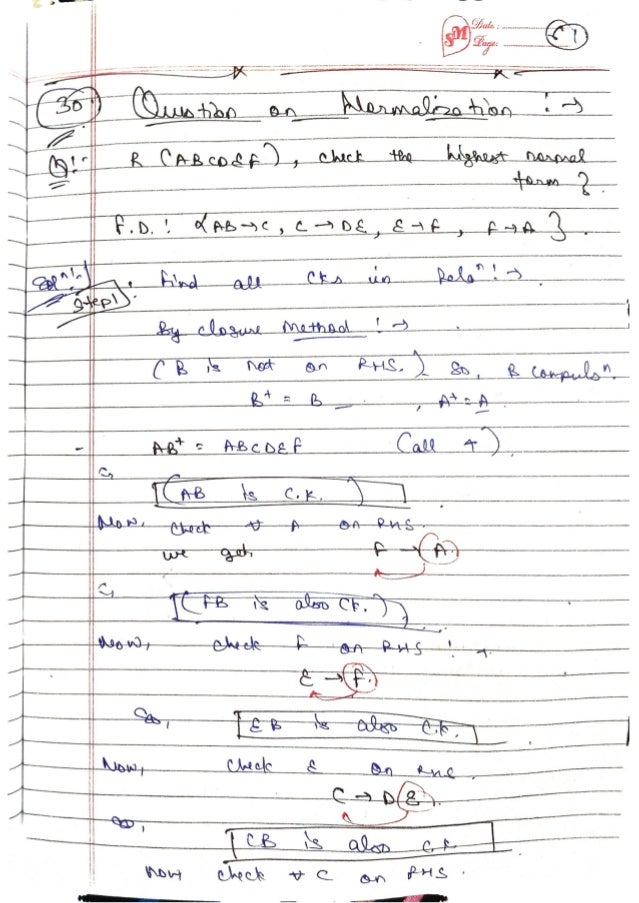 SM Date:
Page: 51
30 Question on Normalization :→
Q!:- R (ABCDEF), check the highest normal
form ?
F.D.: {AB→C, C→DE, E→F, F→A}.
Solⁿ!:
Step1: find all CKs in Relaⁿ!→
By closure Method !→
(B is not on RHS.) So, B compulsⁿ.
B⁺ = B , A⁺ = A
AB⁺ = ABCDEF (all)
(AB is C.K.)
Now, check ∀ A on RHS.
we get, F → A
(FB is also CK.)
Now, check F on RHS !
E → F.
So, EB is also C.K.
Now, check E on RHS.
C → DE
So, CB is also CK
Now check ∀ C on RHS.